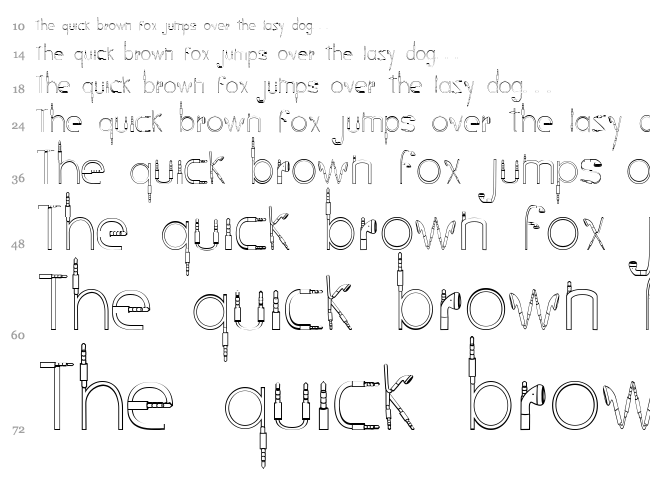 10 The quick brown fox jumps over the lazy dog. . .
14 The quick brown fox jumps over the lazy dog. . .
18 The quick brown fox jumps over the lazy dog. . . .
24 The quick brown fox jumps over the lazy
36 The quick brown fox jumps o
48 The quick brown fox
60 The quick brown
72 The quick brow